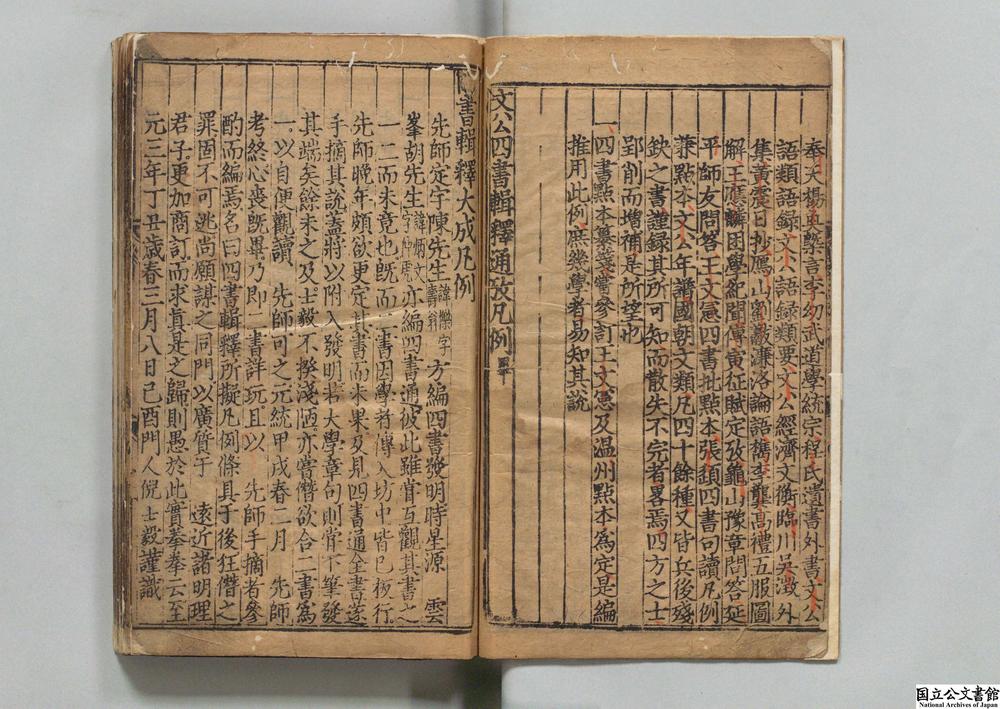 奉天楊與孽言李幼武道學統宗程氏遺書外書文公
語類語錄文公語錄類要文公經濟文衡臨川吳澂外
集黃震日抄鷹山劉敞濂洛論語舊李龔禼禮五服圖
解王應麟困學紀聞傅寅征賦定攷龜山豫章問答延
平師友問答王文憲四書批點本張𩓑四書句讀凡例
兼點本文公年譜國朝文類凡四十餘種又皆兵後殘
欽之書謹錄其所可知而散失不完者畧焉四方之士
郢削而增補是所望也
一四書點本纂箋嘗參訂王文憲及温州點本為定是編
推用此例庶㡬學者易知其說
文公四書輯釋通攷凡例
書輯釋大成凡例
先師定宇陳先生諱櫟字壽翁方編四書發明時星源 雲
峯胡先生諱炳文字仲虎亦編四書通彼此雖嘗互觀其書之
一二而未竟也既而二書因學者傳入坊中皆已板行
先師晚年頗欲更定其書而未果及見四書通全書遂
手摘其說蓋將以附入發明若大學章句則嘗下筆發
其端矣餘未之及士毅不揆淺陋亦嘗僭欲合二書為
一以自便觀讀 先師可之元統甲戌春二月 先師
考終心喪既畢乃即二書詳玩且以 先師手摘者參
酌而編焉名曰四書輯釋所擬凡例條具于後狂僭之
罪固不可逃尚願謀之同門以廣質于 遠近諸明理
君子更加商訂而求真是之歸則愚於此實拳拳云至
元三年丁丑歲春三月八日己酉門人倪士毅謹識
国立公文書館
National Archives of Japan